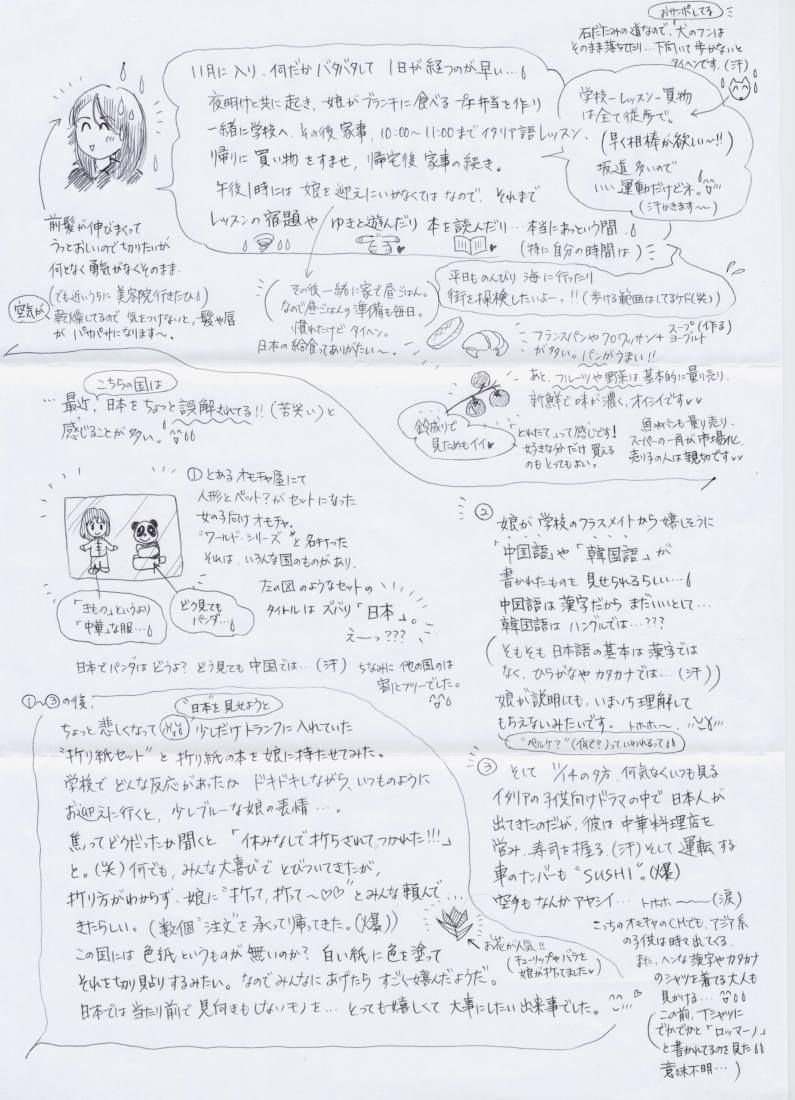 おサンポしてる
石だたみの道なので、犬のフンは
そのまま落ちてたり…下向いて歩かないと
タイヘンです。(汗)
11月に入り、何だかバタバタして 1日が経つのが早い…
夜明けと共に起き、娘がブランチに食べるプチ弁当を作り
一緒に学校へ。その後家事、10:00〜11:00までイタリア語レッスン、
帰りに買い物をすませ、帰宅後家事の続き。
午後1時には 娘を迎えにいかなくてはなので、それまで
レッスンの宿題や ゆきと遊んだり 本を読んだり…本当にあっという間
(特に自分の時間は)
学校ーレッスンー買物
は全て徒歩で。
(早く相棒が欲しい〜!!)
坂道多いので
いい運動だけどネ。
(汗かきます〜〜)
前髪が伸びまくって
うっとおしいので切りたいが
何となく勇気がなくそのまま.
(でも近いうちに美容院行きたひ)
空気が
乾燥してるので 気をつけないと、髪や唇
がパサパサになります〜。
その後一緒に家で昼ごはん。
なので昼ごはんの準備も毎日。
慣れたけどタイヘン。
日本の給食ってありがたい〜。
平日ものんびり 海に行ったり
街を探検したいよー。!!(歩ける範囲はしてるケド(笑))
フランスパンやクロワッサン+スープ(作る)
ヨーグルト
が多い。パンがうまい!!
あと、フルーツや野菜は基本的に量り売り.
新鮮で味が濃く、オイシイです♡♡
鈴成りで
見ためもイイ♡
「とれたて」って感じです!
好きな分だけ買える
のもとってもよい。
魚やパンも量り売り.
スーパーの一角が市場化.
売り子の人は親切です♡♡
こちらの国は
…最近, 日本をちょっと誤解されてる!!(苦笑い)と
感じることが多い。
① とあるオモチャ屋にて
人形とペット?がセットになった
女の子向けオモチャ。
"ワールド・シリーズ"と名打った
それは、いろんな国のものがあり、
左の図のようなセットの
タイトルは ズバリ「日本」。
えーっ???
「きもの」というより
「中華」な服…
どう見ても
パンダ…
日本でパンダはどうよ? どう見ても 中国では…(汗)
ちなみに 他の国のは
割りとフツーでした。
② 娘が学校のクラスメイトから嬉しそうに
「中国語」や「韓国語」が
書かれたものを 見せられるらしい…
中国語は漢字だから まだいいとして…
韓国語は ハングルでは…???
(そもそも日本語の基本は漢字では
なく、ひらがなやカタカナでは…(汗))
娘が説明しても、いまいち理解して
もらえないみたいです。トホホ〜.
"ペルケ?"(何で?)っていわれるって
③ そして 11/14の夕方、何気なくいつも見る
イタリアの子供向けドラマの中で日本人が
出てきたのだが、彼は中華料理店を
営み、寿司を握る。(汗)そして運転する
車のナンバーも"SUSHI"。(爆)
空手もなんかアヤシイ… トホホ〜〜(涙)
こっちのオモチャのCMでも、アジア系
の子供は時々出てくる.
また、ヘンな漢字やカタカナ
のシャツを着てる大人も
見かける…
(この前、Tシャツに
でかでかと「ロッマーノ」
と書かれてるのを見た
意味不明…)
①〜③の後、
"日本"を見せようと
ちょっと悲しくなって 少しだけトランクに入れていた
"折り紙セット"と 折り紙の本を娘に持たせてみた。
学校で どんな反応があったか ドキドキしながら、いつものように
お迎えに行くと、少しブルーな娘の表情…。
焦ってどうだったか聞くと 「休みなしで折らされてつかれた!!!」
と。(笑)何でも、みんな大喜びで とびついてきたが、
折り方がわからず、娘に"折って,折って〜♡♡"とみんな頼んで
きたらしい。(数個"注文"を承って帰ってきた。(爆))
この国には 色紙というものが無いのか? 白い紙に色を塗って
それを切り貼りするみたい。なのでみんなにあげたら すごく嬉んだようだ。
日本では当たり前で見向きもしないモノを… とっても嬉しくて 大事にしたい出来事でした。
お花が人気!!
(チューリップやバラを
娘が折ってました♡)